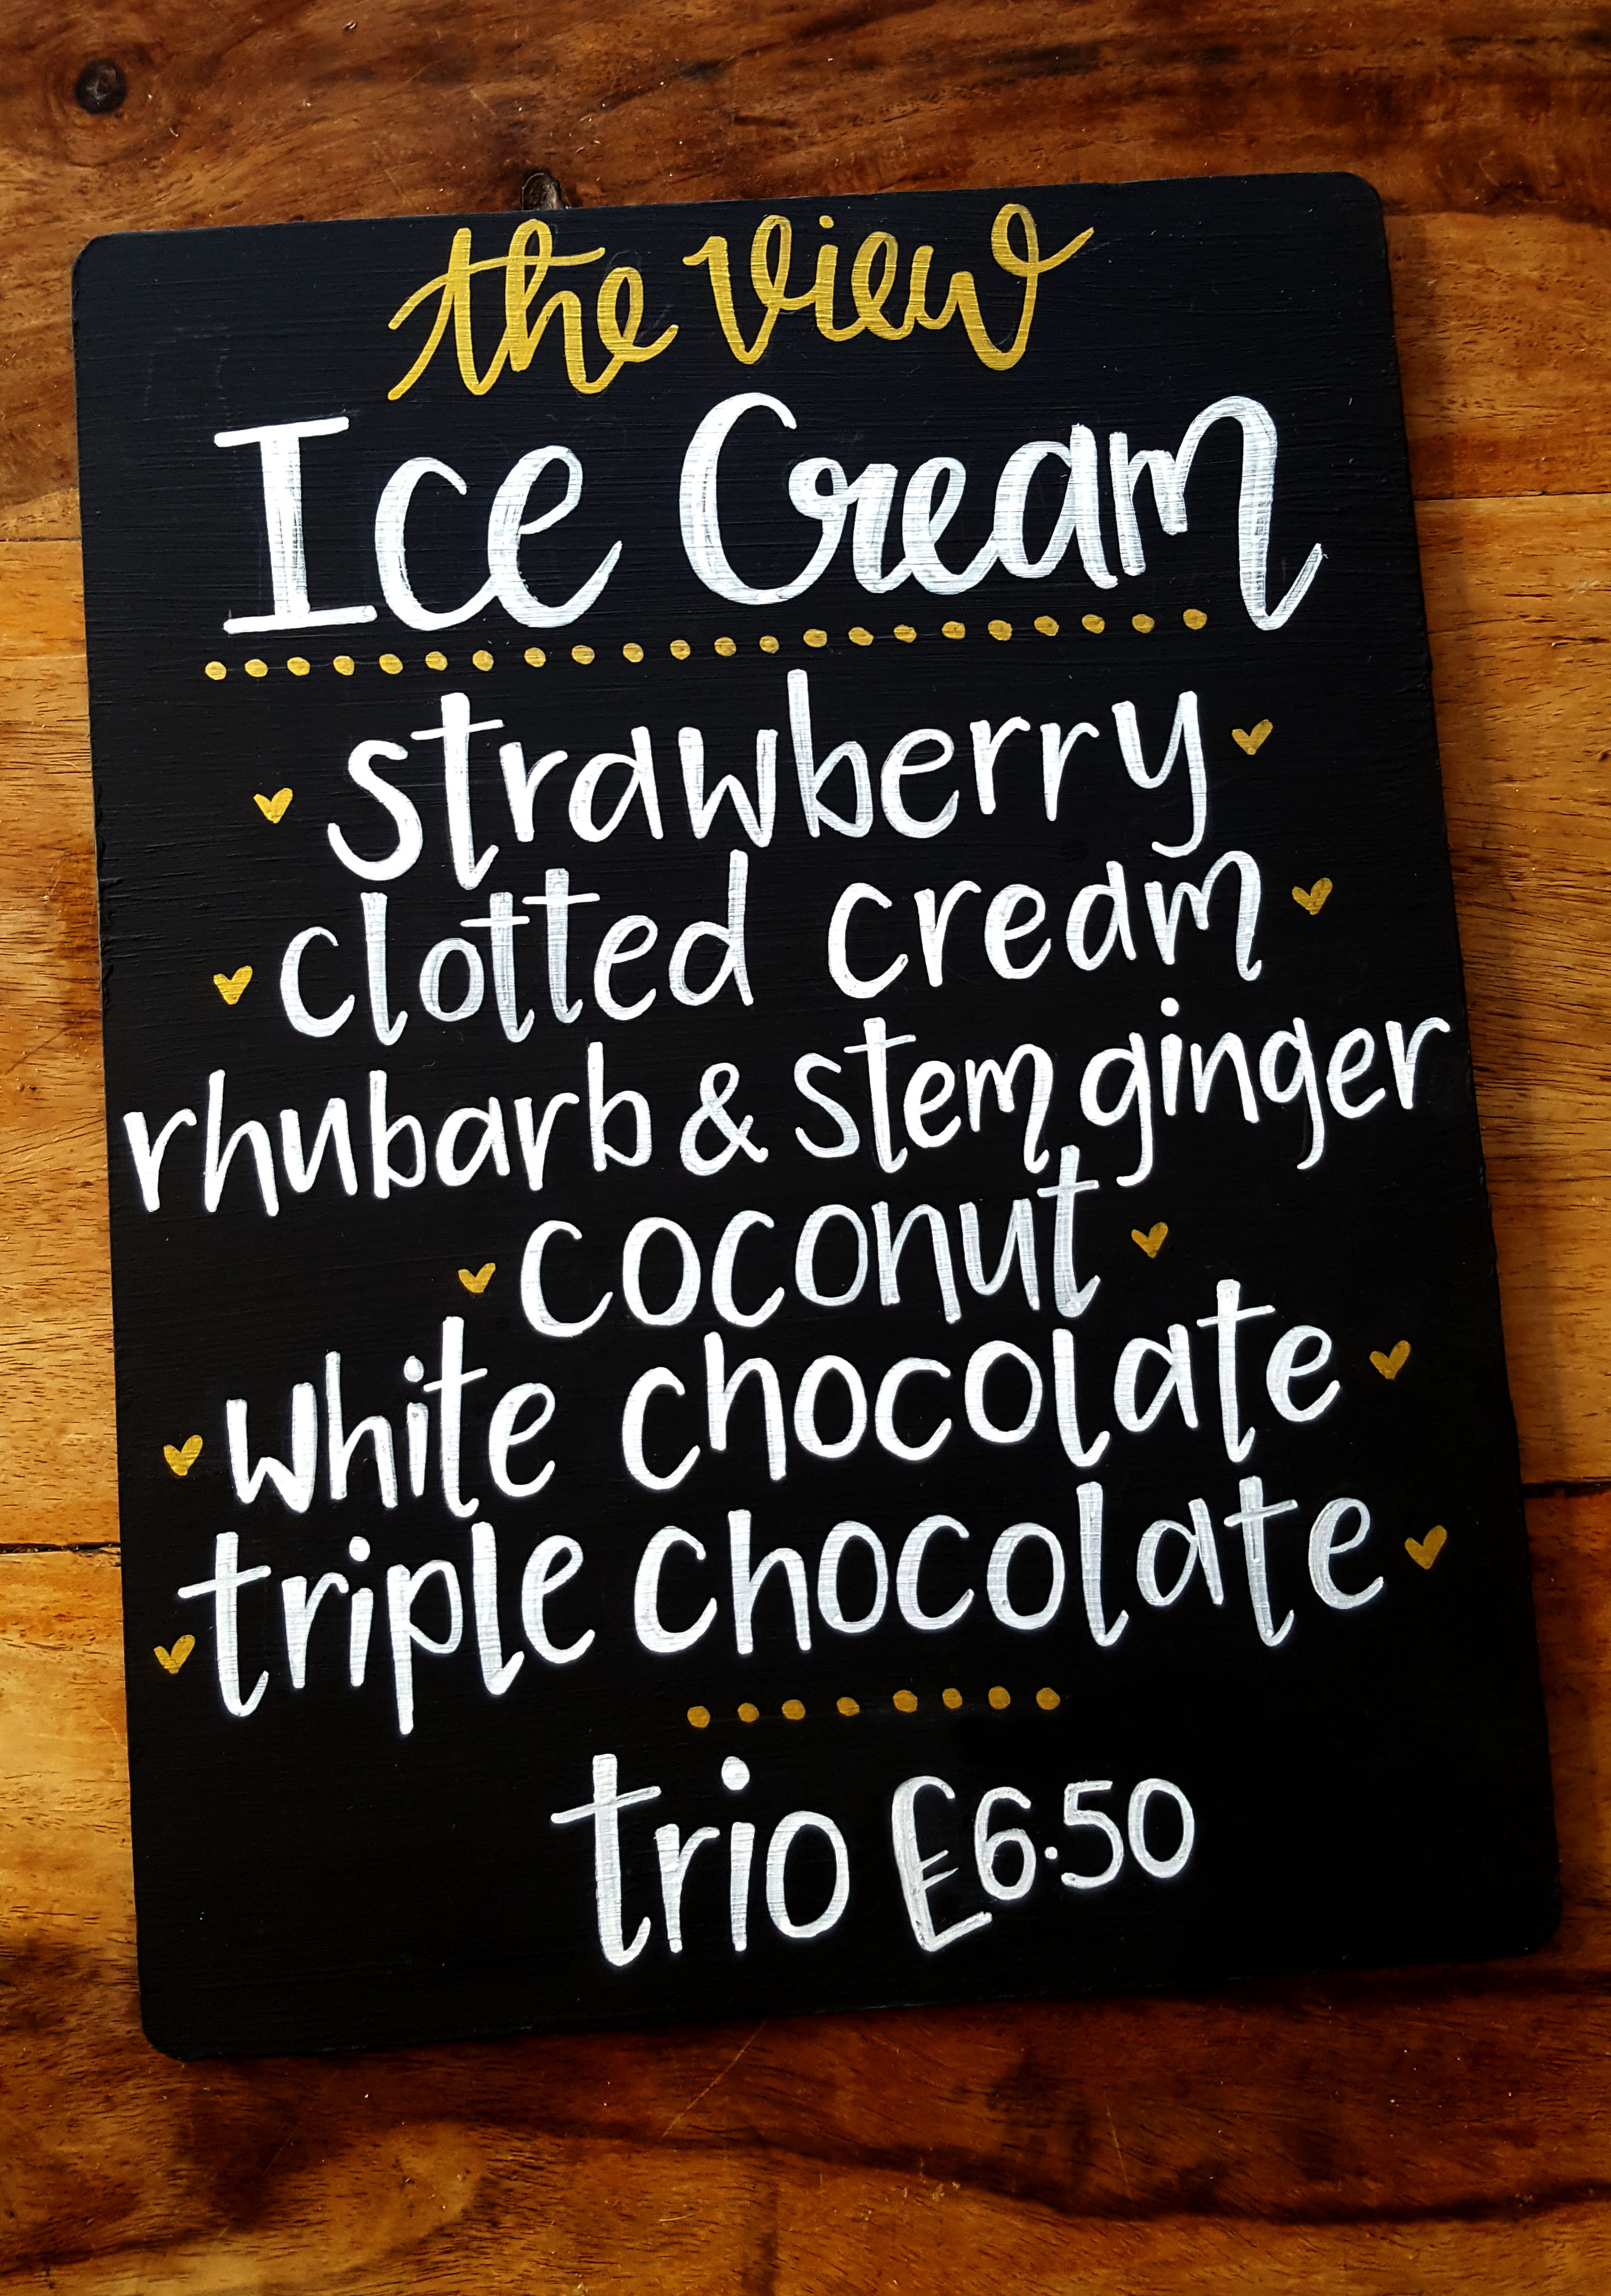 the view
Ice Cream
strawberry
clotted cream
rhubarb & stem ginger
coconut
white chocolate
triple chocolate
trio £6.50